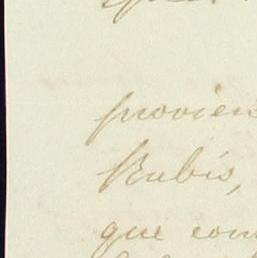 provien
Rubis,
que com